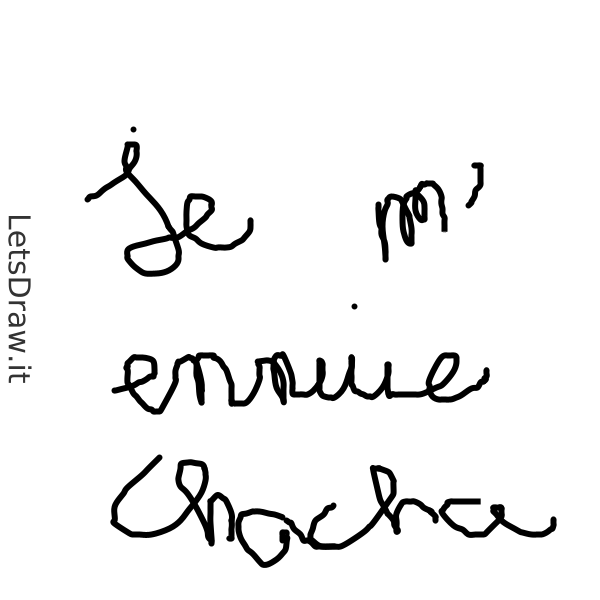 je m'
ennuie
Chacha
LetsDraw.it